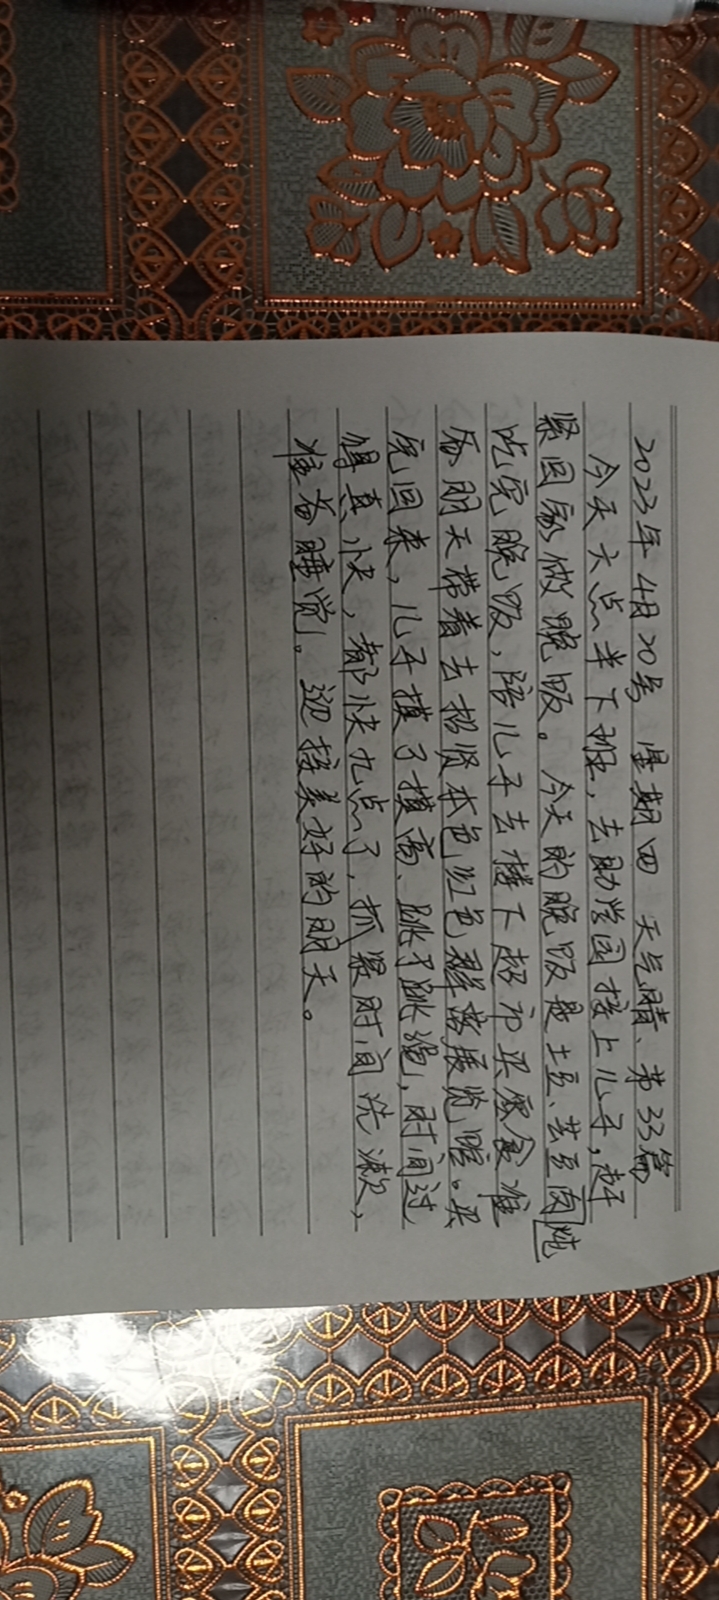 2023年4月20号 星期四 天气晴、第33篇
今天六点半下班，去助学园接上儿子，赶
紧回家做晚饭。今天的晚饭是土豆、芸豆炖肉
吃完晚饭，陪儿子去楼下超市买零食准
备明天带着去招贤本色红色群落展览馆。买
完回来，儿子摸了摸高、跳了跳绳，时间过
得真快，都快九点了，抓紧时间洗漱，
准备睡觉。迎接美好的明天。